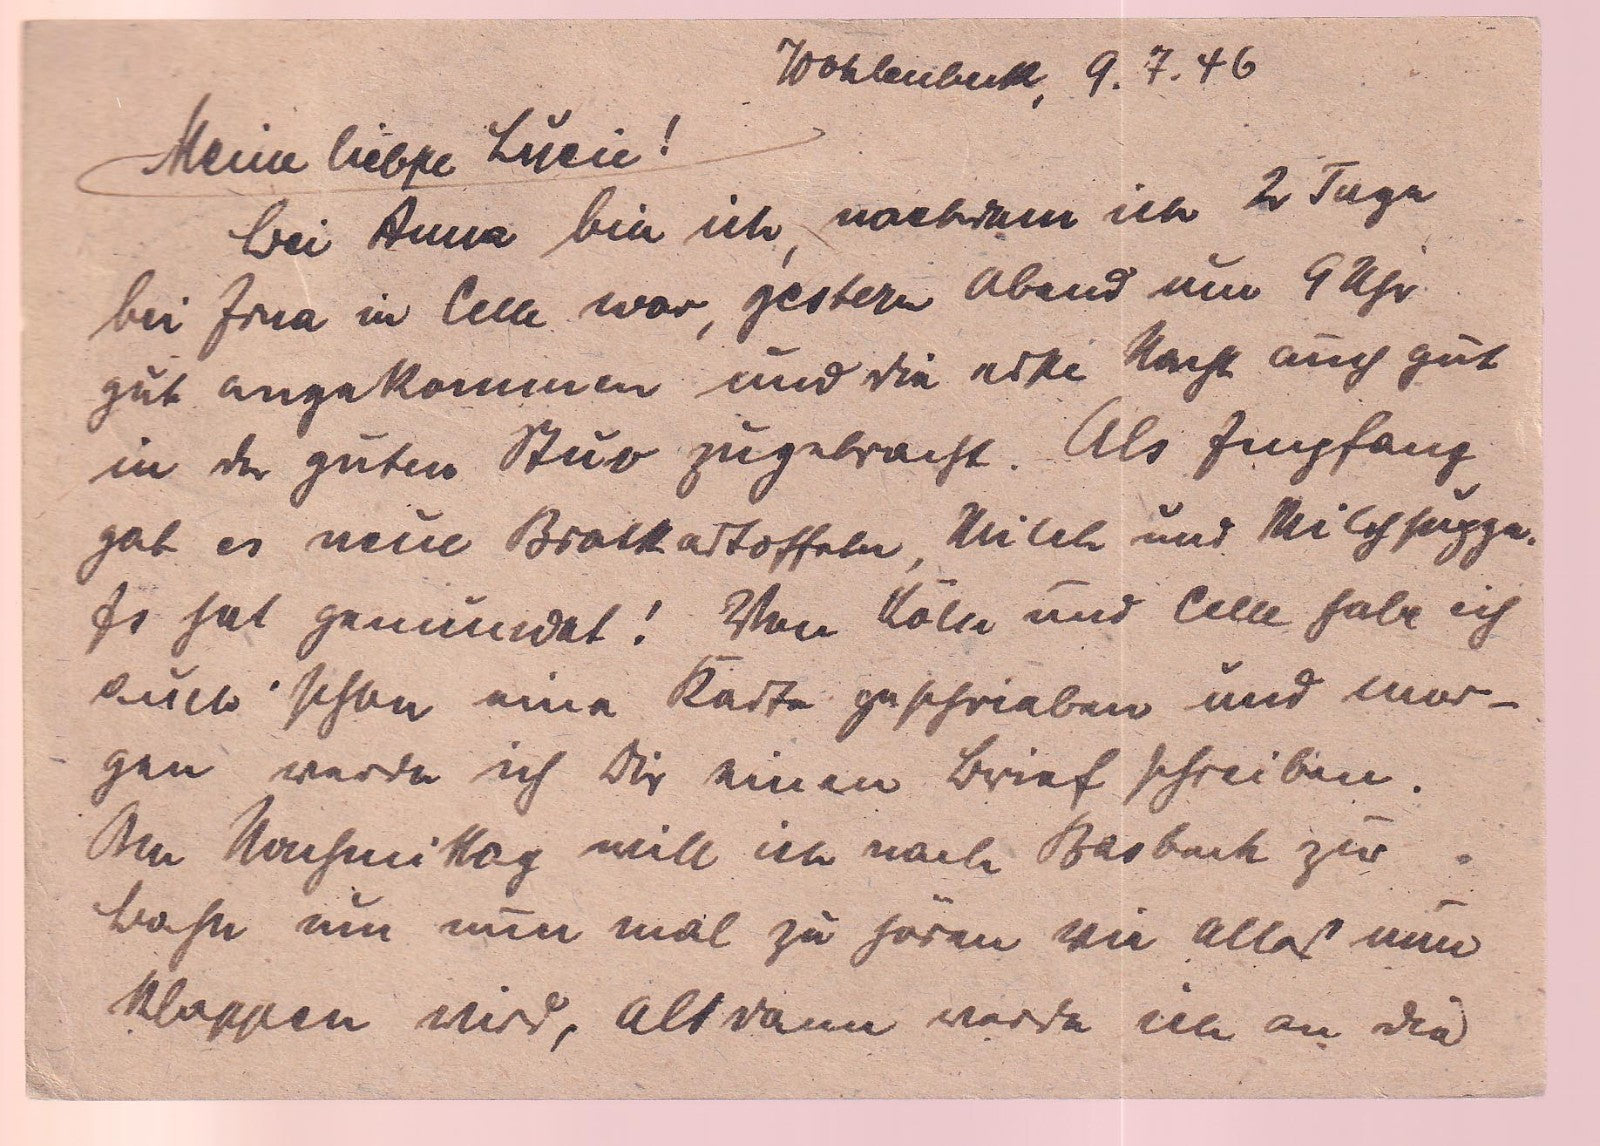 Wohlenbeck, 9.7.46
Meine liebste Lucie!
Bei Anna bin ich, nachdem ich 2 Tage
bei Erna in Celle war, gestern Abend um 9 Uhr
gut angekommen und die erste Nacht auch gut
in der guten Stuv zugebracht. Als Empfang
gab es neue Bratkartoffeln, Milch und Milchsuppe.
Es hat gemundet! Von Köln und Celle habe ich
auch schon eine Karte geschrieben und mor-
gen werde ich Dir einen Brief schreiben.
Am Nachmittag will ich nach Basbeck zur
Bahn um nun mal zu hören wie alles nun
klappen wird, alsdann werde ich an die